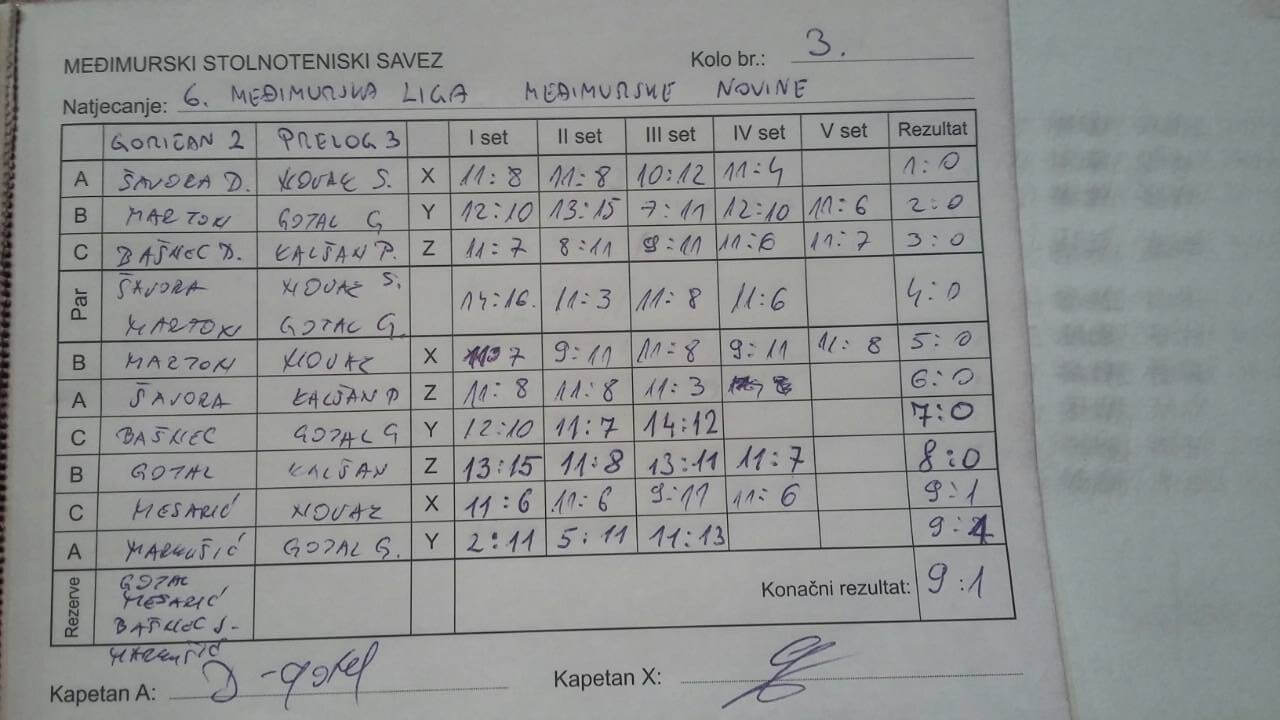 MEĐIMURSKI STOLNOTENISKI SAVEZ Kolo br.: 3.
Natjecanje: 6. MEĐIMURSKA LIGA MEĐIMURSKE NOVINE
GORIČAN 2 PRELOG 3 I set II set III set IV set V set Rezultat
A ŠAVORA D. NOVAK S. X 11:8 11:8 10:12 11:4 1:0
B MARTON GOTAL G Y 12:10 13:15 7:11 12:10 11:6 2:0
C BAŠNEC D. KALŠAN P. Z 11:7 8:11 9:11 11:6 11:7 3:0
Par ŠAVORA NOVAK S. 14:16. 11:3 11:8 11:6 4:0
MARTON GOTAL G.
B MARTON NOVAK X 7 9:11 11:8 9:11 11:8 5:0
A ŠAVORA KALŠAN P Z 11:8 11:8 11:3 6:0
C BAŠNEC GOTAL G Y 12:10 11:7 14:12 7:0
B GOTAL KALŠAN Z 13:15 11:8 13:11 11:7 8:0
C MESARIĆ NOVAK X 11:6 11:6 9:11 11:6 9:1
A MARKUŠIĆ GOTAL G. Y 2:11 5:11 11:13 9:1
Rezerve GOTAL
MESARIĆ
BAŠNEC S.
MARKUŠIĆ
Konačni rezultat: 9:1
Kapetan A: D-gotal Kapetan X: